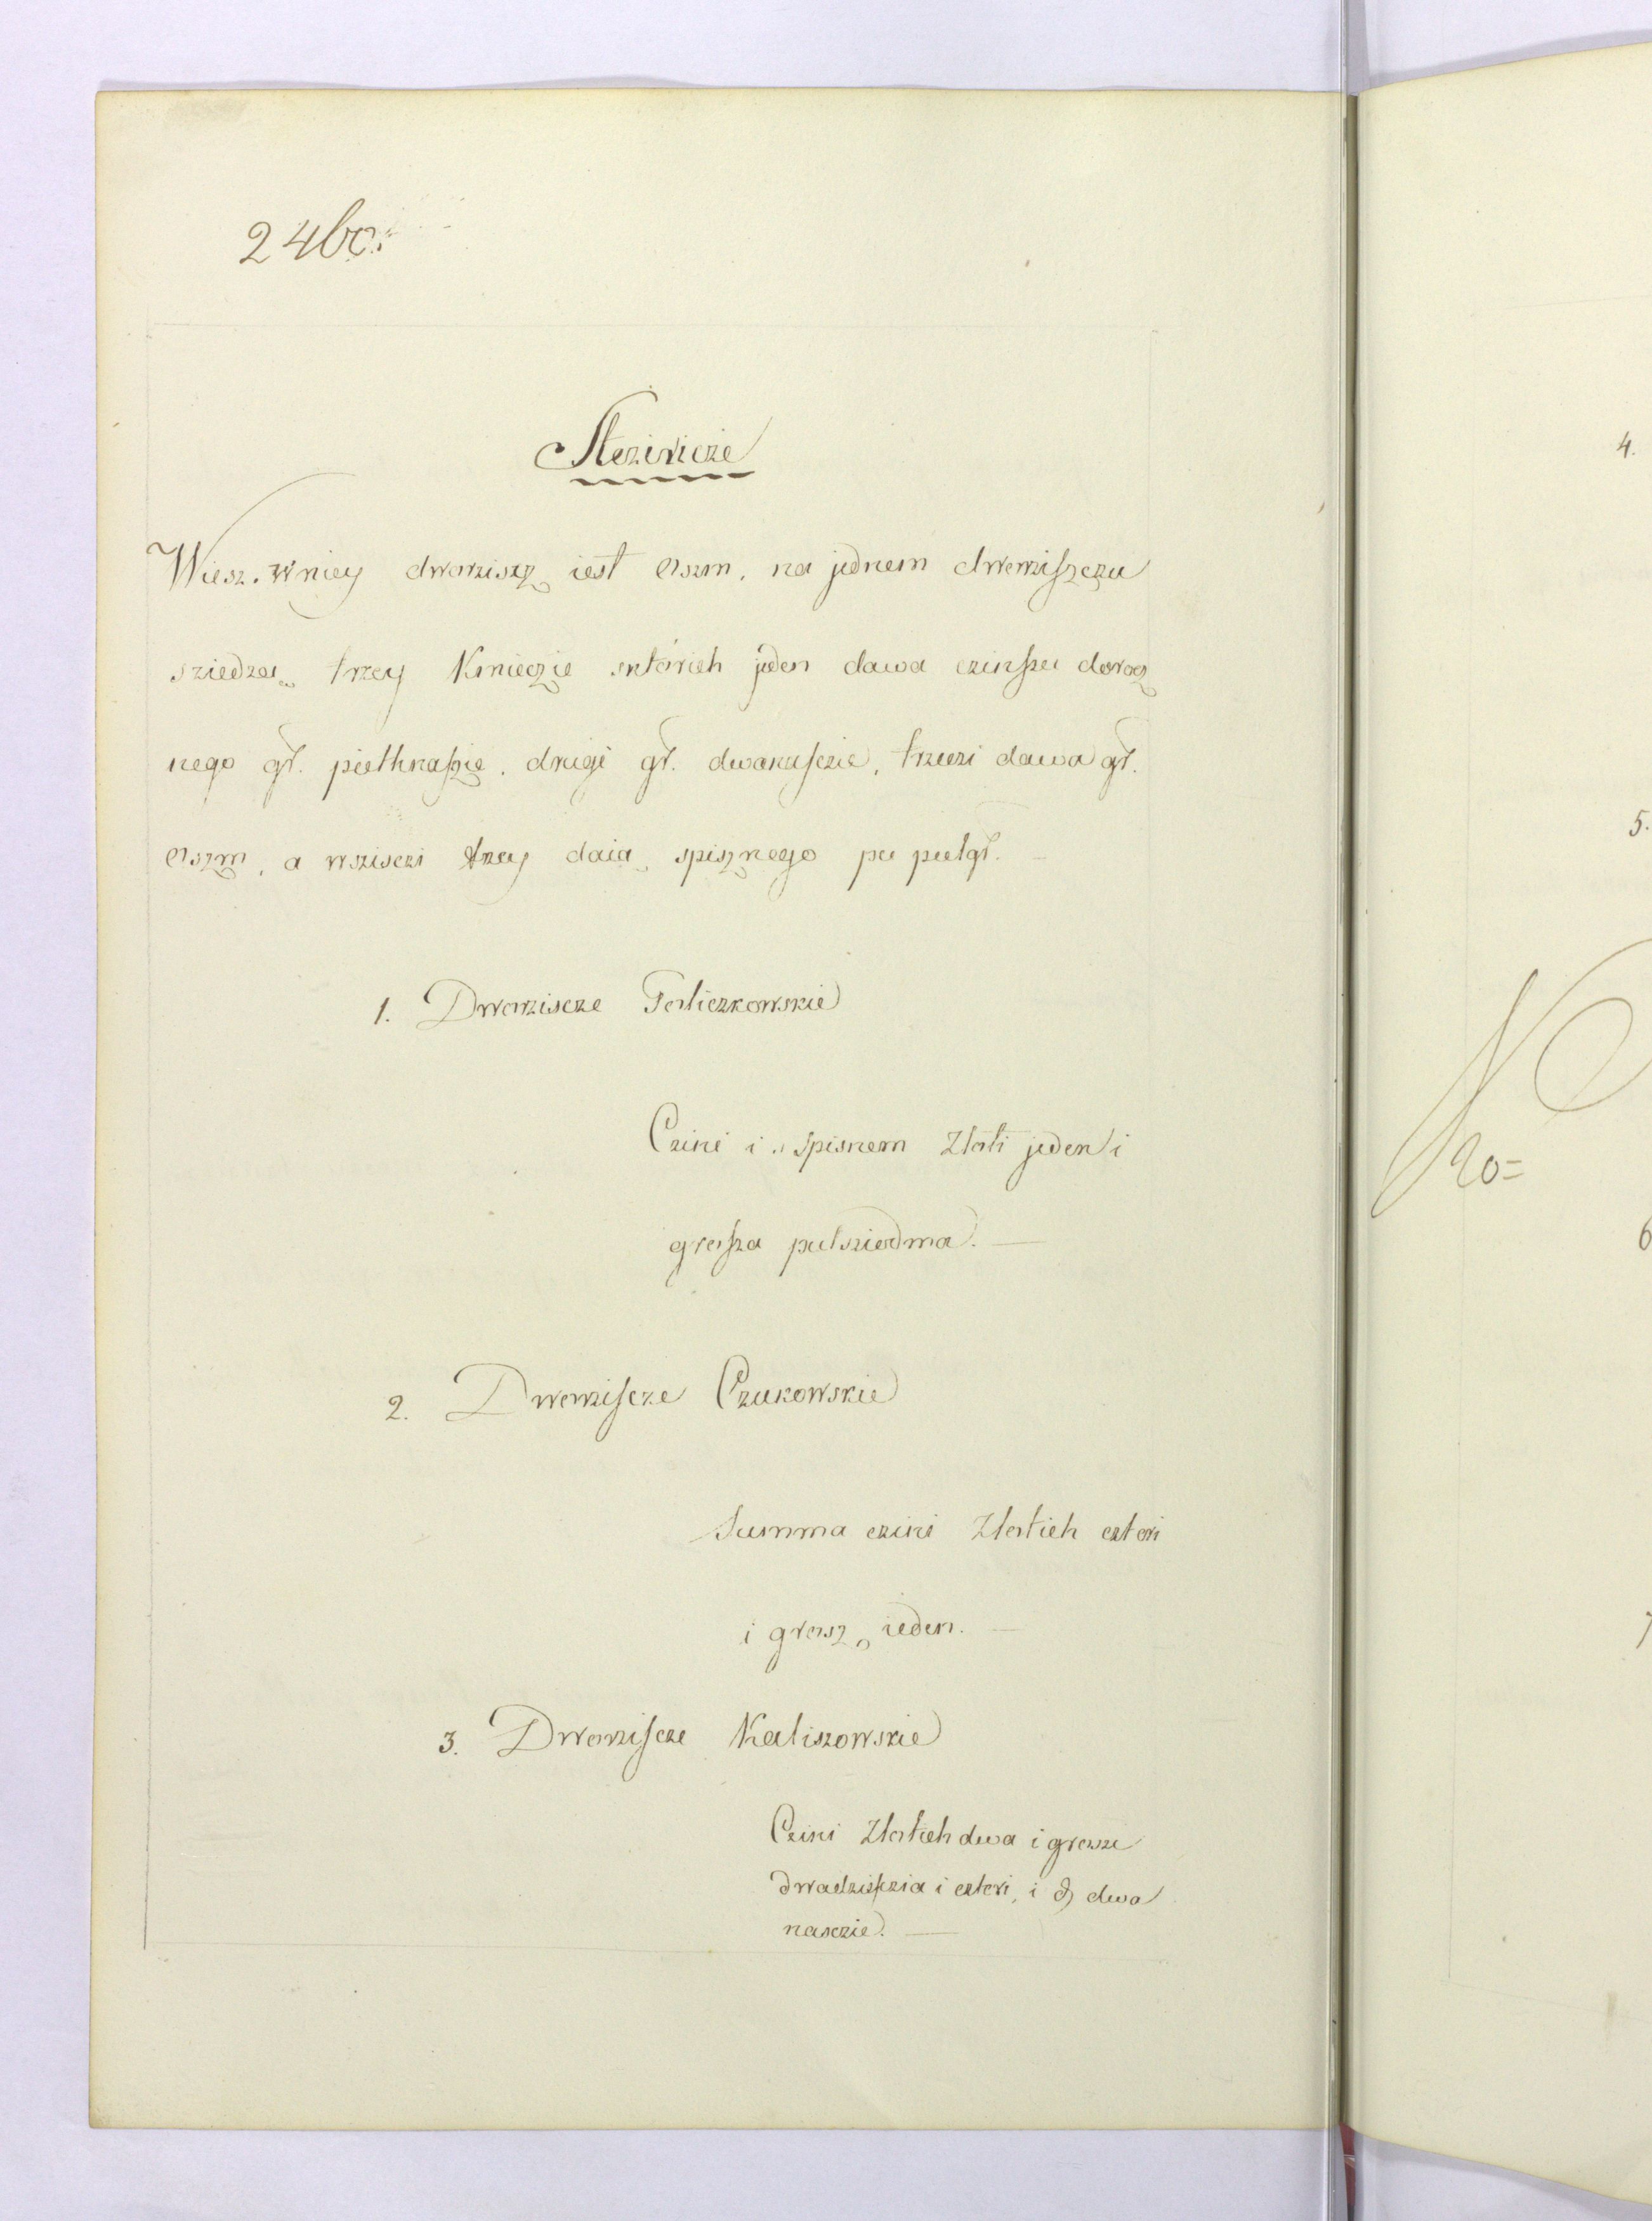 2460.
Steziricze
Wiesz. w niey dworziszcz iest oszm. na jednem dworziszczu
sziedzą trzey Kmieczie sktorich jeden dawa czinszu dorocz
nego gř. pietknaszie. drugi gř. dwanascie, trzeczi dawa gř.
oszm, a wszisczi trzey daią spisznego po pułgř.
1. Dworziscze
Czini i s spisnem Złoti jeden i
grosza pułsziodma.
2. Dworziscze Czukowskie
Summa czini Złotich czteri
i grosz, ieden.
3. Dworziscze Kaliszowskie
Czini Złotich dwa i groszi
dwadziesczia i czteri, i dwa
nasczie.
4.
5.
No=
6
7